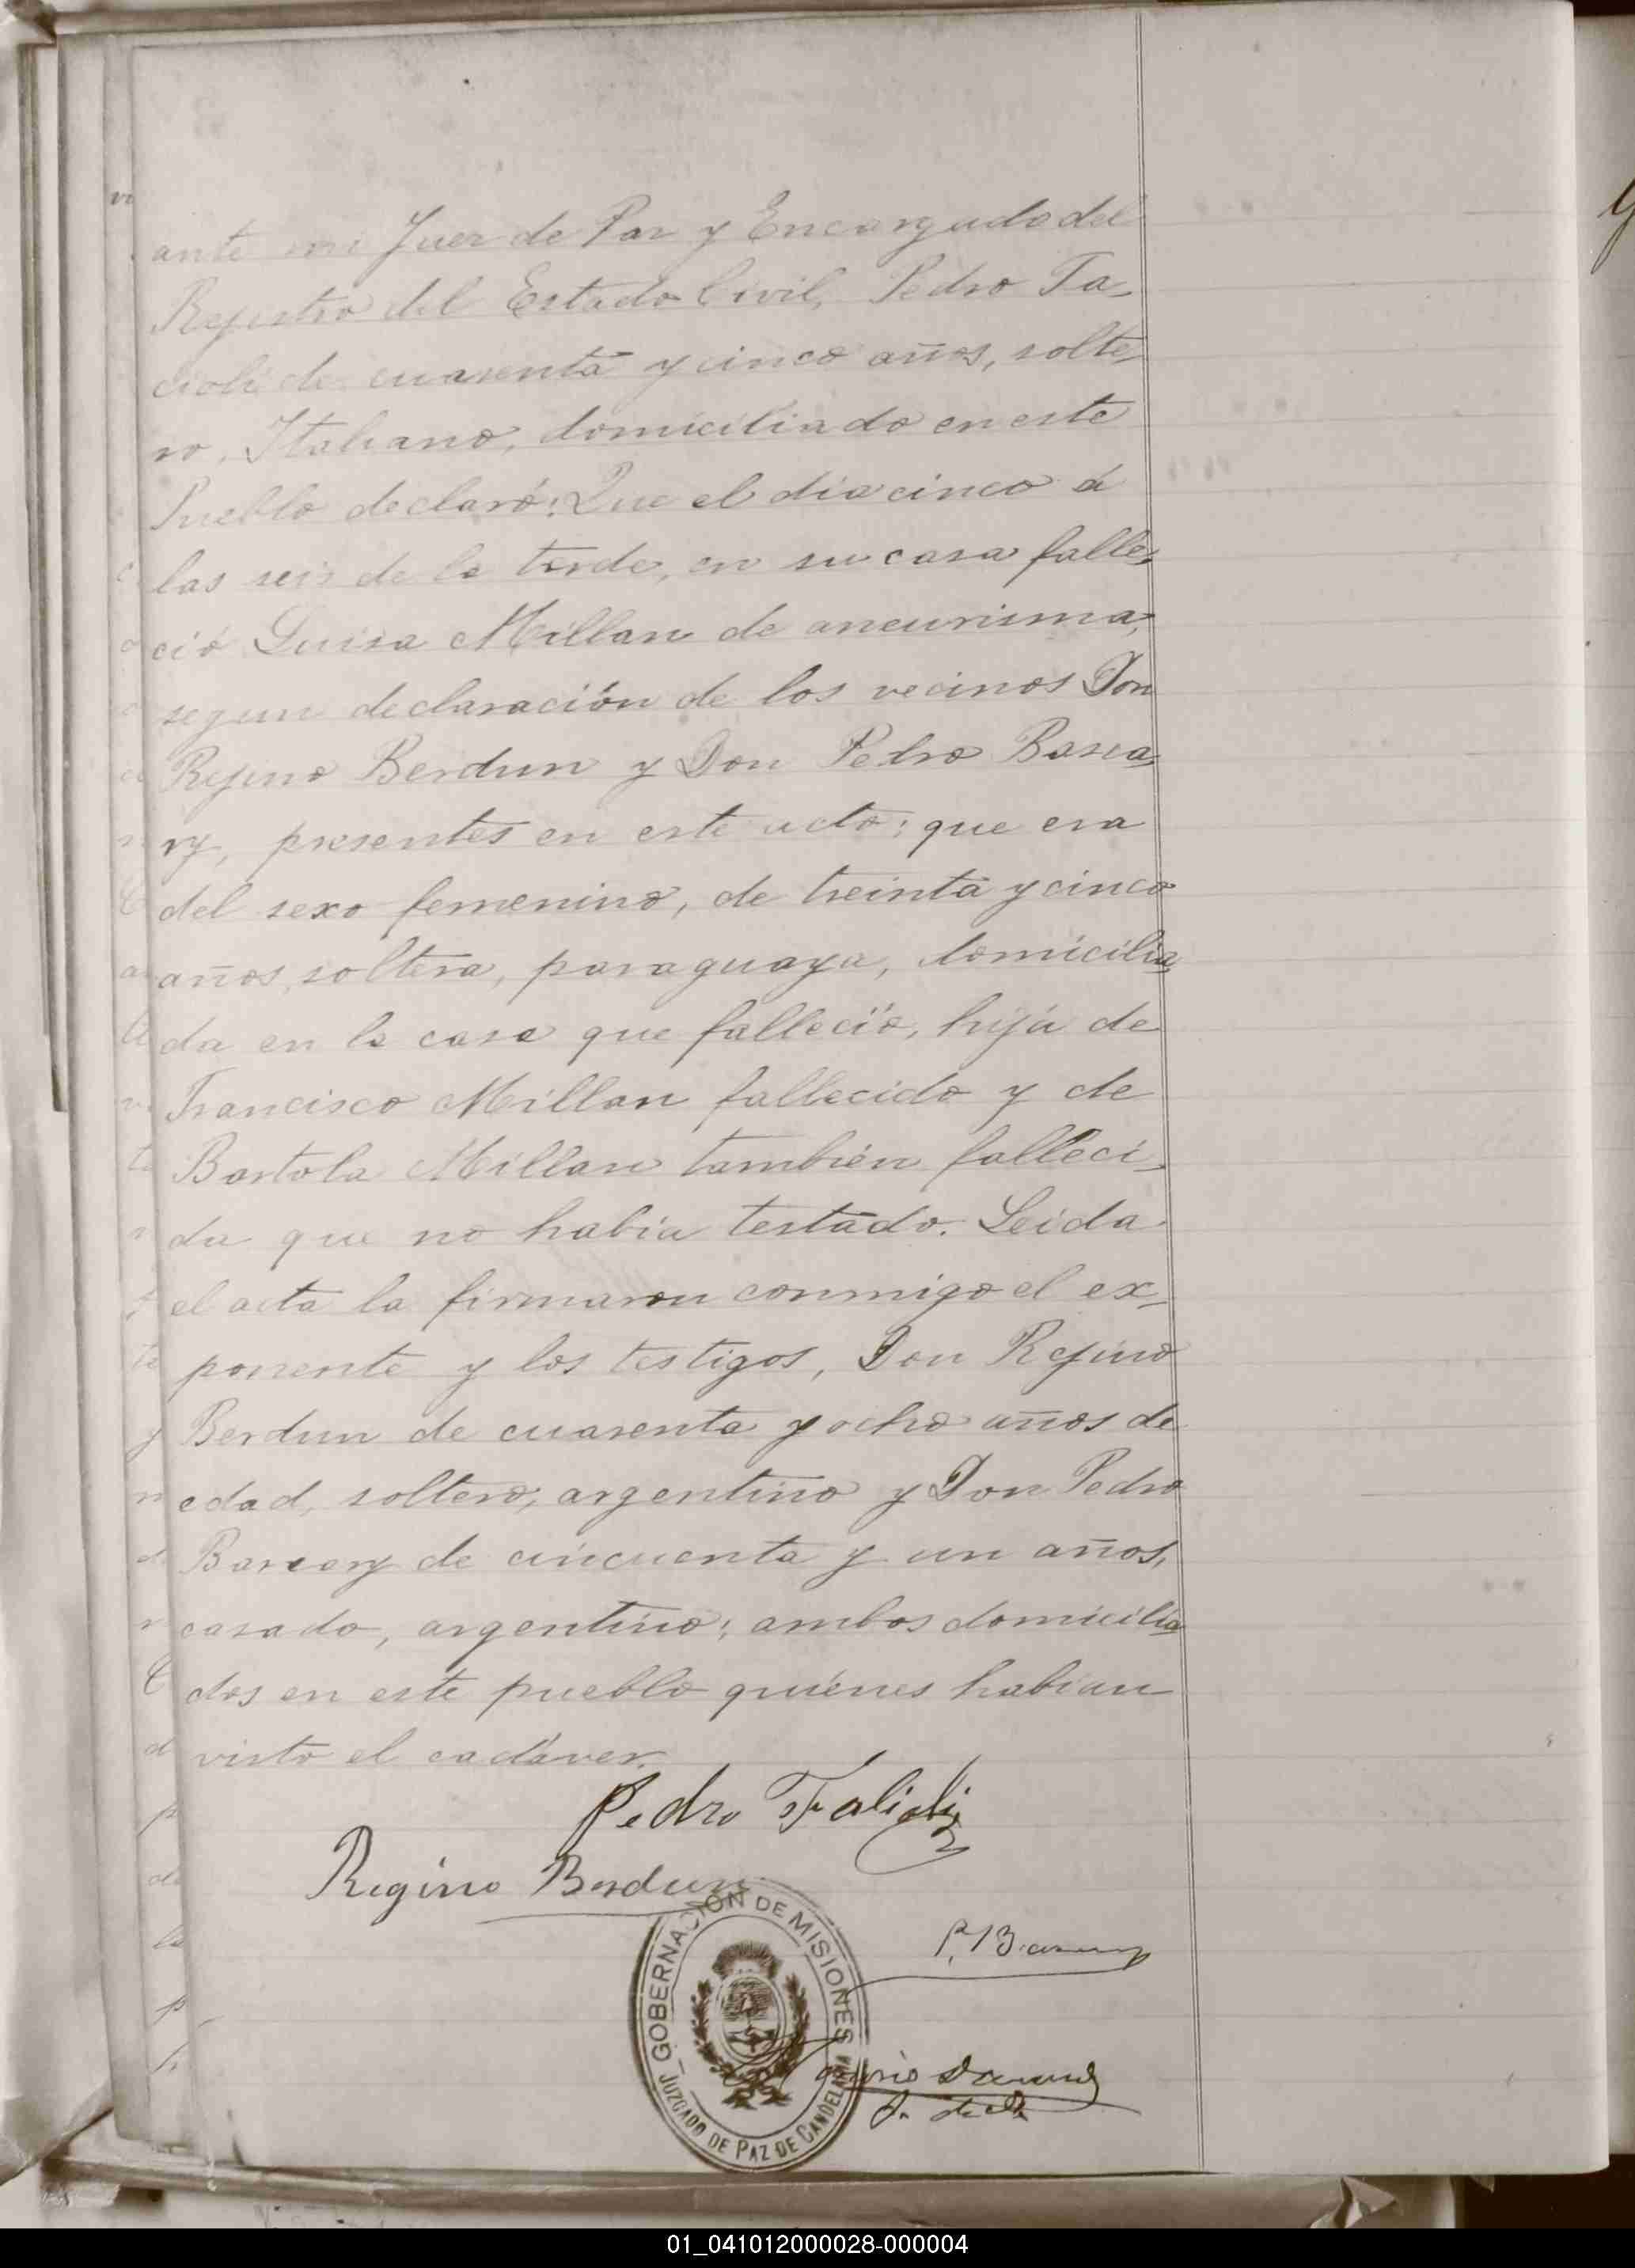 ante mi Juez de Paz y Encargado del
Rejistro del Estado Civil, Pedro Ta-
cioli de cuarenta y cinco años, solte-
ro, Italiano, domiciliado en este
Pueblo declaró: Que el dia cinco á
las seis de la tarde, en su casa falle-
ció Luisa Millan de aneurisma,
segun declaración de los vecinos Don
Rejino Berdun y Don Pedro Basua-
ry, presentes en este acto; que era
del sexo femenino, de treinta y cinco
años, soltera, paraguaya, domicilia-
da en la casa que falleció, hija de
Francisco Millan fallecido y de
Bartola Millan tambien falleci-
da que no habia testado. Leida
el acta la firmaron conmigo el ex-
ponente y los testigos, Don Rejino
Berdun de cuarenta y ocho años de
edad, soltero, argentino y Don Pedro
de cincuenta y un años,
casado, argentino; ambos domicilia
dos en este pueblo quienes habian
visto el cadáver.
Pedro
Regino Berdun
GOBERNACIÓN DE MISIONES
JUZGADO DE PAZ DE CANDELARIA
01_041012000028-000004